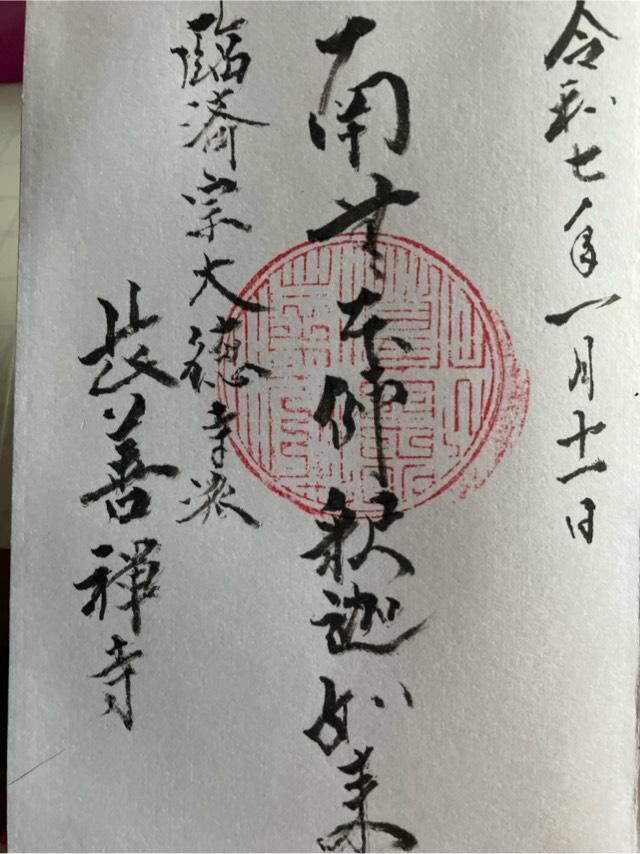 令和七年一月十一日
南無本師釈迦如来
臨済宗大徳寺派
長善禅寺